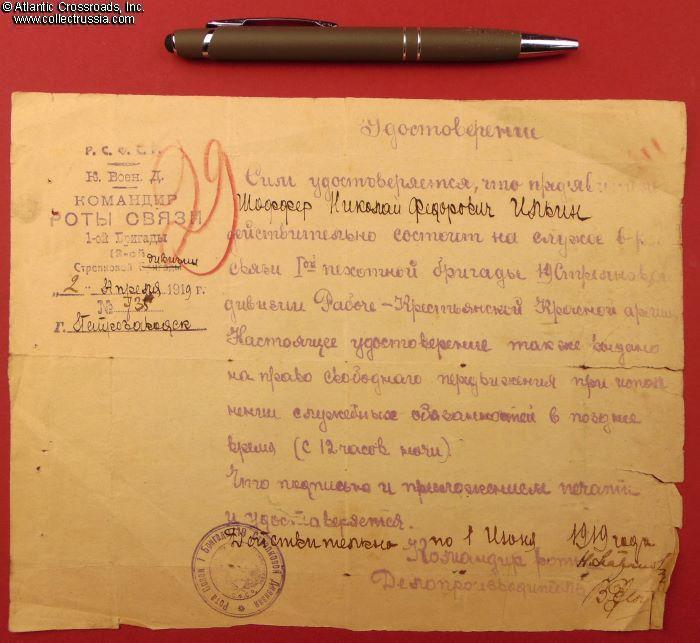 © Atlantic Crossroads, Inc.
www.collectrussia.com
Р. С. Ф. С. Р.
Воен. Д.
КОМАНДИР
РОТЫ СВЯЗИ
1-ой Бригады
Стрелковой дивизии
"2" Апреля 1919 г.
№ 735
г. Петрозаводск
29
Удостоверение
Сим удостоверяется, что
Шоффер Николай Федорович Ильин
действительно состоит на службе в
связи Iой пехотной бригады 19 Стрелковой
дивизии Рабоче-Крестьянской Красной армии
Настоящее удостоверение также выдано
на право свободнаго передвижения при испол
нении служебных обязанностей в позднее
время (с 12 часов ночи).
Что подписью и приложением печати
и удостоверяется.
Действительно по 1 Июня 1919 года
Командир роты
Делопроизводитель
Рота Связи 1 Бригады 19 Стрелковой Дивизии